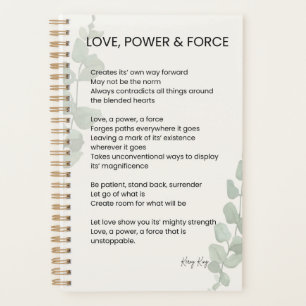 LOVE, POWER & FORCE
Creates its' own way forward
May not be the norm
Always contradicts all things around
the blended hearts
Love, a power, a force
Forges paths everywhere it goes
Leaving a mark of its' existence
wherever it goes
Takes unconventional ways to display
its' magnificence
Be patient, stand back, surrender
Let go of what is
Create room for what will be
Let love show you its' mighty strength
Love, a power, a force that is
unstoppable.
Kerry Kay